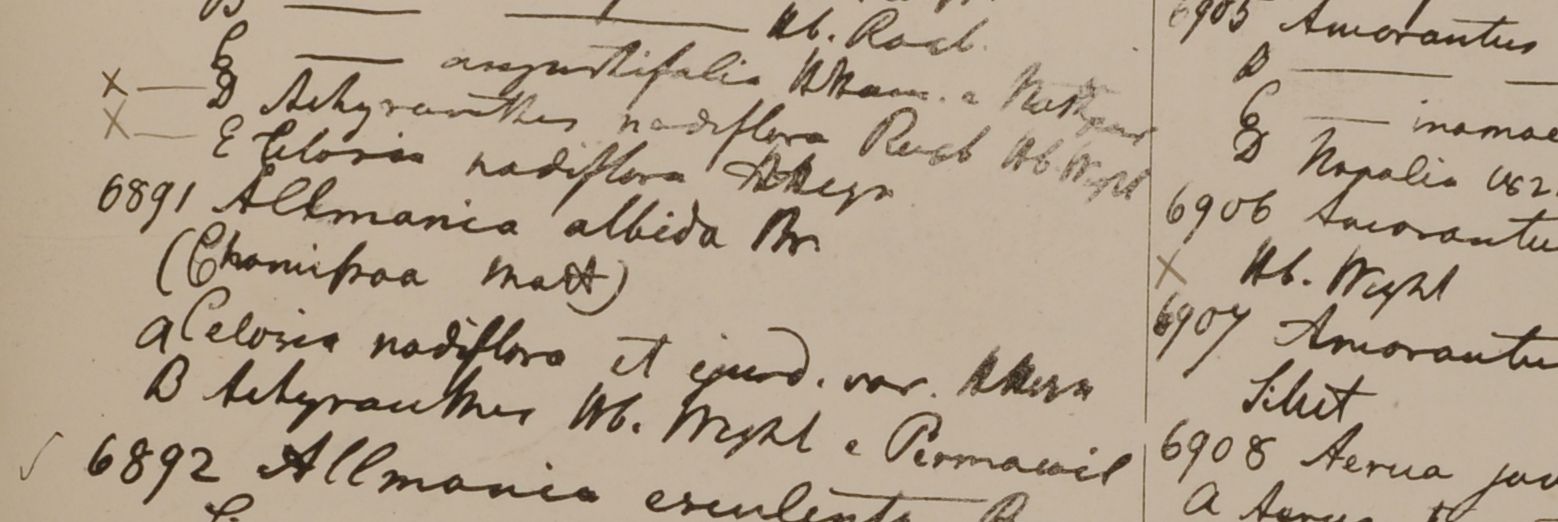 B Hb. Roxb.
C angustifolia HHam. e
x D Achyranthes nodiflora Roxb Hb Wight
x E Celosia nodiflora HHeyn
6891 Allmania albida Br.
(Chamissoa Mart)
a Celosia nodiflora et ejusd. var. HHeyn
B Achyranthes Hb. Wight e
6892 Allmania esculenta
6905 Amarantus
B
C inamoe
D
6906 Amarantu
x Hb. Wight
6907 Amarantu
Silhet
6908 Aerua jav
a Aerua